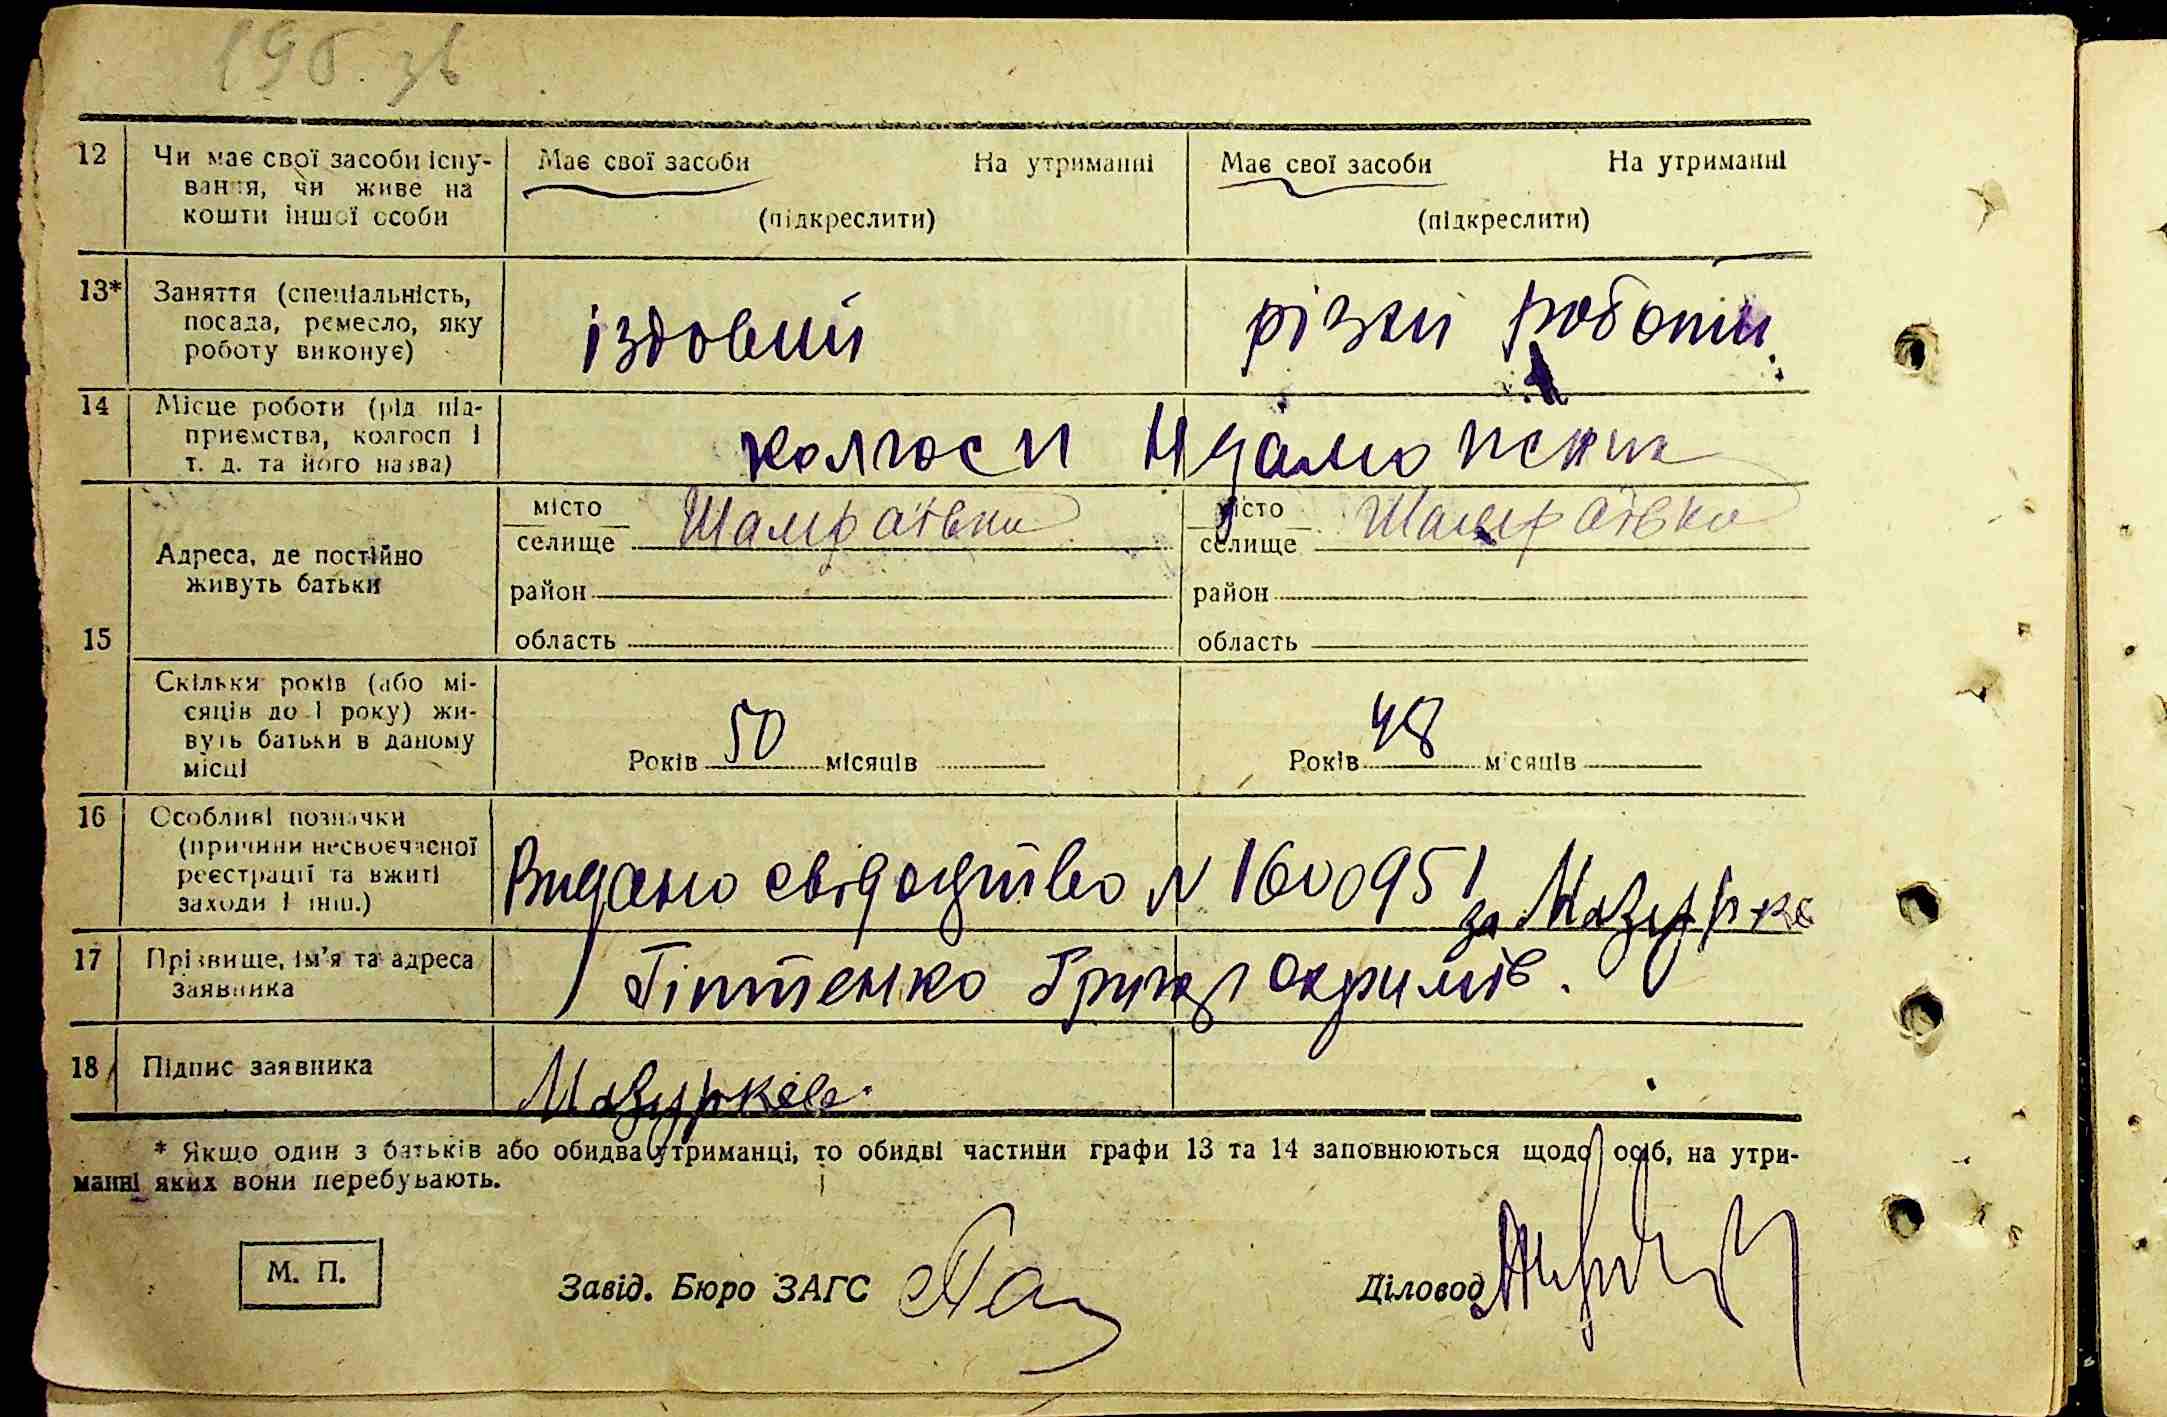 196. зв
12 Чи має свої засоби існу- Має свої засоби На утриманні Має свої засоби На утриманні
вання, чи живе на
кошти іншої особи (підкреслити) (підкреслити)
13* Заняття (спеціальність,
посада, ремесло, яку іздовий різки роботи
роботу виконує)
14 Місце роботи (рід під-
приємства, колгосп і колгосп
т. д. та його назва)
місто Шамраївка місто Шамраївка
селище селище
Адреса, де постійно
живуть батьки
район район
15
область область
Скільки років (або мі-
сяців до 1 року) жи-
вуть батьки в даному
місці Років 50 місяців Років 48 місяців
16 Особливі позначки
(причини несвоєчасної
реєстрації та вжиті Видано свідоцтво N 1600951 за
заходи і інш.)
17 Прізвище, ім'я та адреса
заявника Гіптенко
18 Підпис заявника
* Якщо один з батьків або обидва утриманці, то обидві частини графи 13 та 14 заповнюються щодо осіб, на утри-
манні яких вони перебувають.
М. П.
Завід. Бюро ЗАГС Діловод